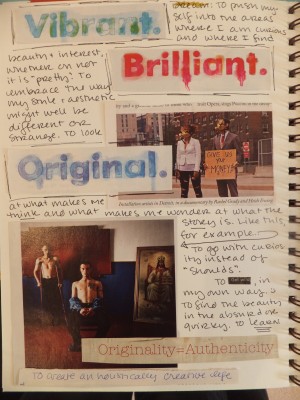 Vibrant.
To push my
self into the areas
where I am curious
and where I find
beauty + interest,
whether or not
it is "pretty". To
embrace the way
my smile + aesthetic
might well be
different or
strange. To look
Brilliant.
Original.
at what makes me
think and what makes me wonder at what the
story is. Like this
for example.
To go with curios
ity instead of
"shoulds".
To in
my own way. To
to find the beauty
in the absurd or
quirky. To learn
Originality=Authenticity
To create an holistically creative life